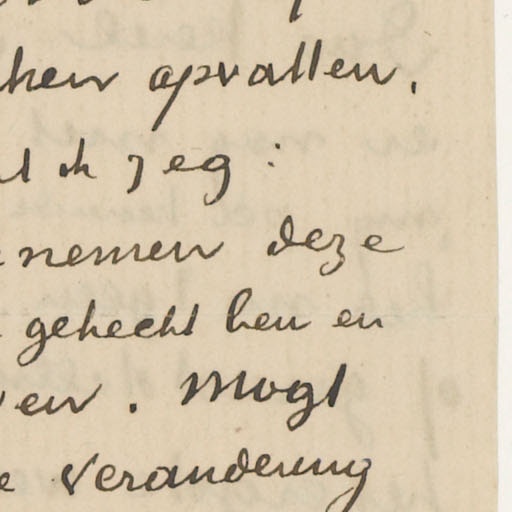 hen opvallen.
ik zeg:
nemen deze
gehecht ben en
en. Mogt
e verandering